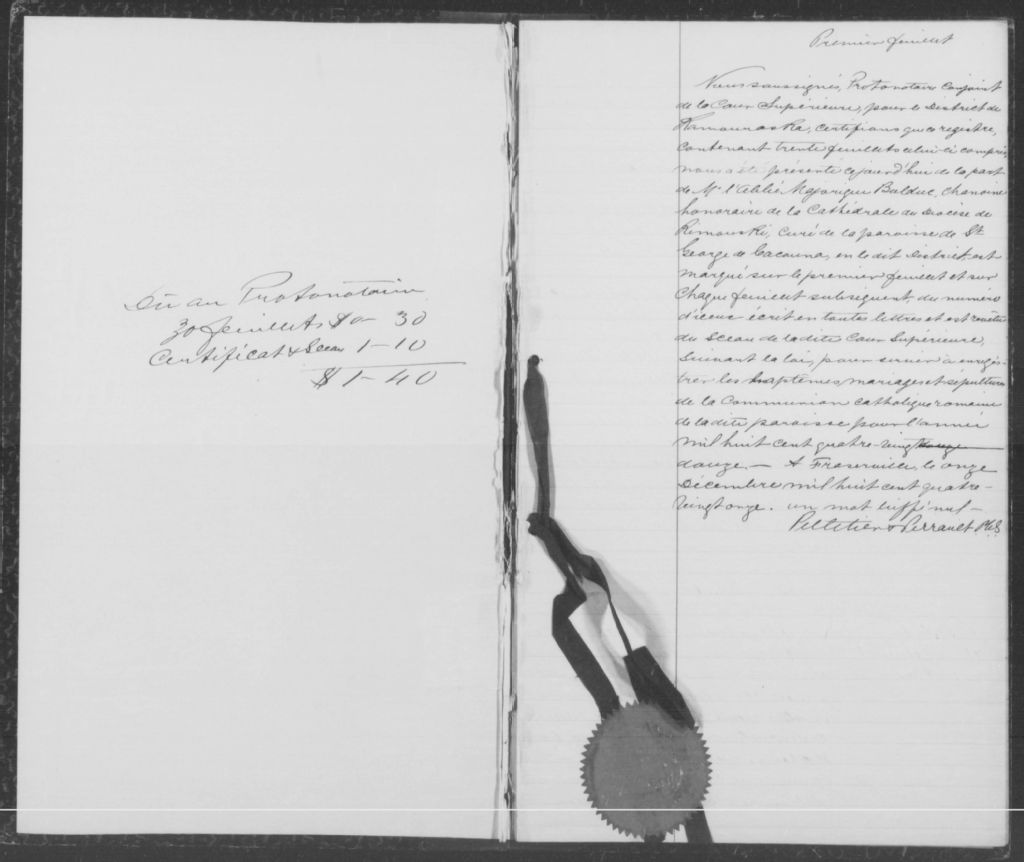 Dû au Protonotaire
30 feuillets $0 - 30
Certificat & Sceau 1 - 10
$ 1 - 40
Premier feuillet
Nous soussignés, Protonotaire Conjoint
de la Cour Supérieure, pour le District de
Kamouraska, certifions que ce registre,
contenant trente feuillets celui-ci compris,
nous a été présenté ce jourd'hui de la part
de Mr l'abbé Majorique Bolduc, chanoine
honoraire de la Cathédrale du Diocèse de
Rimouski, curé de la paroisse de St
George de Cacouna, en le dit District, est
marqué sur le premier feuillet et sur
chaque feuillet subséquent, du numéro
d'iceux écrit en toutes lettres et est revêtu
du Sceau de la dite Cour Supérieure,
suivant la loi, pour servir à enrégis-
trer les baptêmes, mariages et sépultures
de la Communion catholique romaine
de la dite paroisse pour l'année
mil huit cent quatre-vingt onze
douze. — A Fraserville, le onze
Décembre mil huit cent quatre-
vingt onze. un mot biffé nul —
Pelletier & Perrault P.C.S.